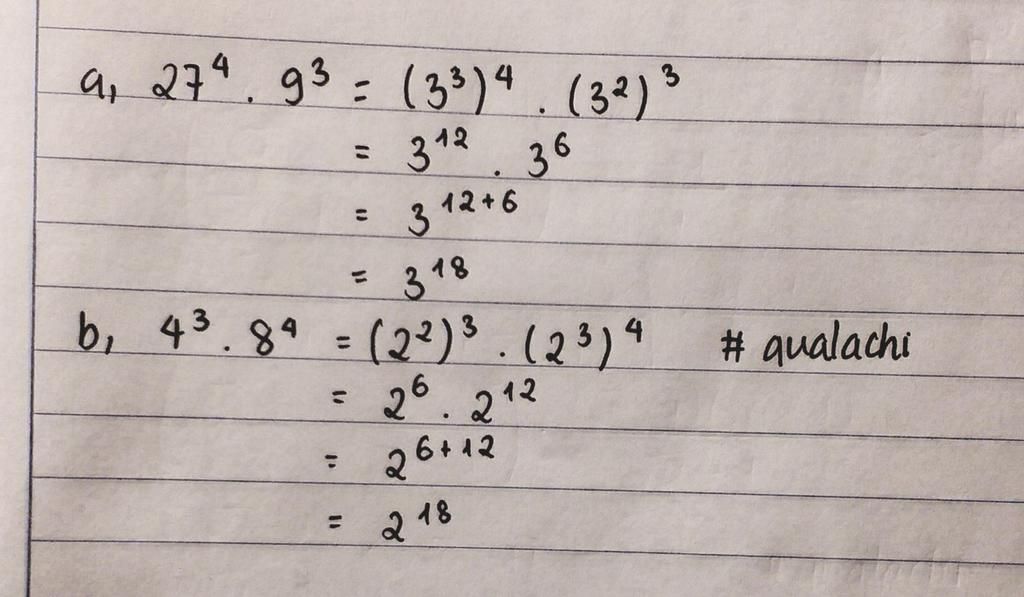 a, 27⁴ . 9³ = (3³)⁴ . (3²)³
= 3¹² . 3⁶
= 3¹²⁺⁶
= 3¹⁸
b, 4³ . 8⁴ = (2²)³ . (2³)⁴ # qualachi
= 2⁶ . 2¹²
= 2⁶⁺¹²
= 2¹⁸